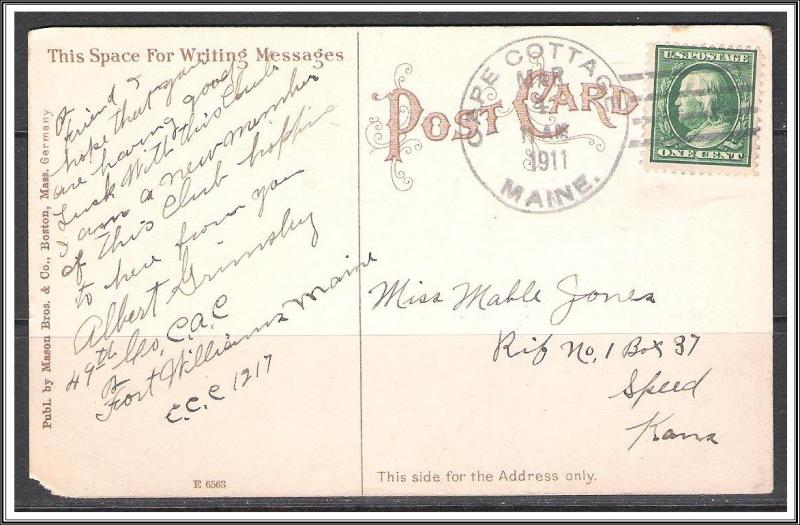 This Space For Writing Messages
Friend I
hope that you
are having good
Lusk With this Club
I am a new member
of This Club hopping
to here from you
Albert Grimsley
49th Co, C.A.C
Fort Williams Maine
E.C.C 1217
Publ. by Mason Bros. & Co., Boston, Mass. Germany
E 6563
POST CARD
CAPE COTTAGE
MAR
1911
MAINE.
U.S. POSTAGE
ONE CENT
Miss Mable Jones
No, 1 Box 37
Speed
Kans
This side for the Address only.